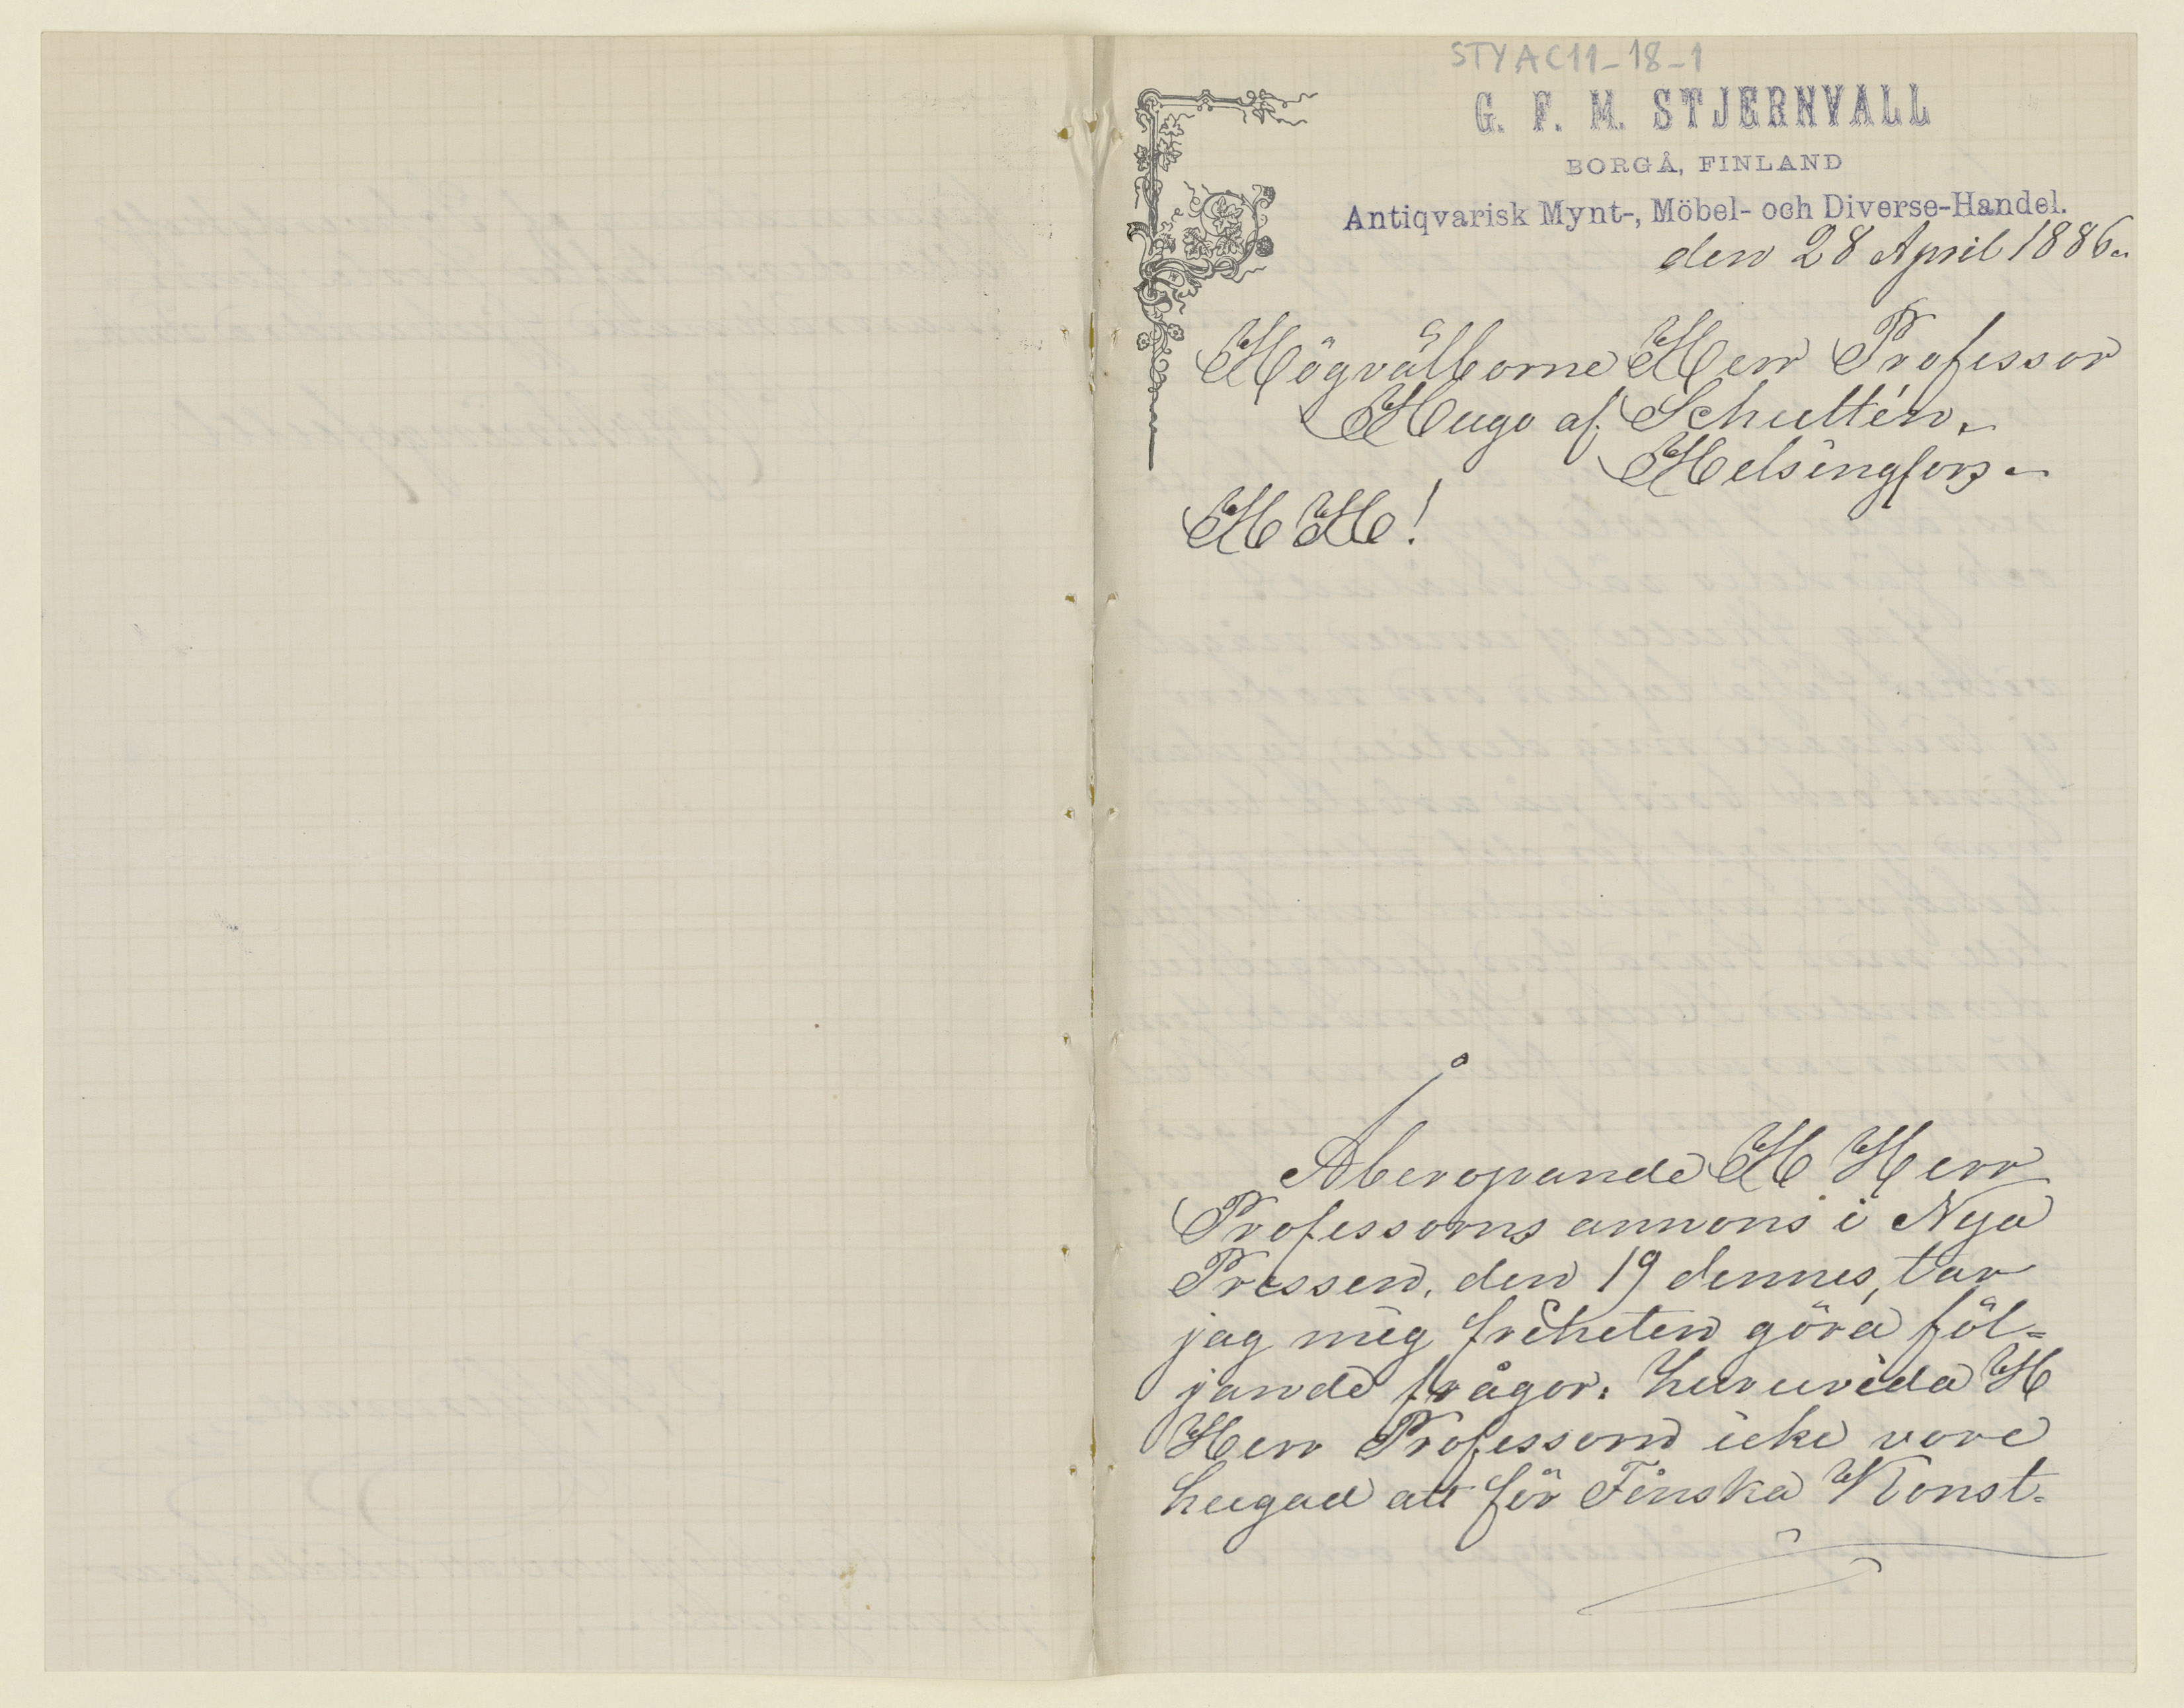 STYAC11_18_1
G. F. M. STJERNVALL
BORGÅ, FINLAND
Antiqvarisk Mynt-, Möbel- och Diverse-Handel.
den 28 April 1886.
Högvälborne Herr Professor
Hugo af Schultén.
Helsingfors.
H H!
Åberopande H Herr
Professorns annons i Nya
Pressen, den 19 dennes, tar
jag mig friheten göra föl=
jande frågor: huruvida H
Herr Professorn icke vore
hugad att för Finska Konst-